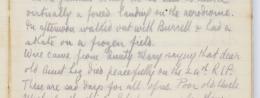 virtually a forced landing on the aerodrome.
In afternoon walked out with Burrell & had a
skate on a frozen field.
Wire came from Aunty Mary saying that dear
old Aunt Liz died peacefully on the 24th R.I.P.
These are sad days for all of us. Poor old Uncle